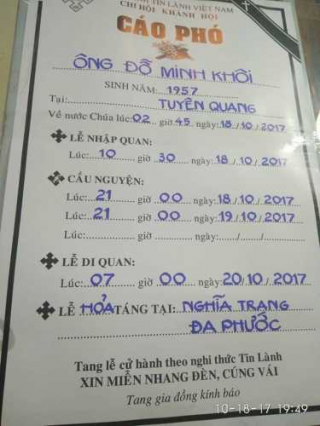 TIN LÀNH VIỆT NAM
CHI HỘI KHÁNH HỘI
CÁO PHÓ
ÔNG ĐỖ MINH KHÔI
SINH NĂM: 1957
Tại: TUYÊN QUANG
Về nước Chúa lúc: 02 giờ 45 ngày: 18/10/2017
LỄ NHẬP QUAN:
Lúc: 10 giờ 30 ngày: 18/10/2017
CẦU NGUYỆN:
Lúc: 21 giờ 00 ngày: 18/10/2017
Lúc: 21 giờ 00 ngày: 19/10/2017
Lúc: giờ ngày: / /
LỄ DI QUAN:
Lúc: 07 giờ 00 ngày: 20/10/2017
LỄ HỎA TÁNG TẠI: NGHĨA TRANG
ĐA PHƯỚC
Tang lễ cử hành theo nghi thức Tin Lành
XIN MIỄN NHANG ĐÈN, CÚNG VÁI
Tang gia đồng kính báo
10-18-17 19:49